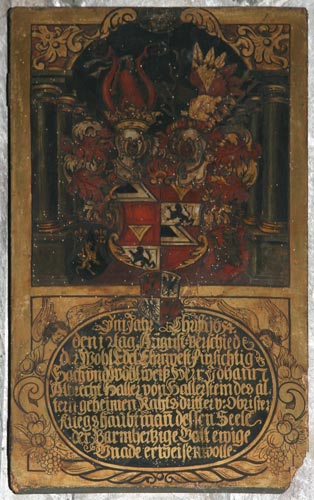 Im Jahr Christi 1654
den 1 tag Augusti verschied
d. Wohl Edel Ehrnvest Fürsichtig
Hoch und Wolweiß Herr Johann
Albrecht Haller von Hallerstein des äl
tern geheimen Rahts dritter Obrister
Kriegshaubtman dessen Seele
der Barmhertzige Gott ewige
Gnade erweisen wolle